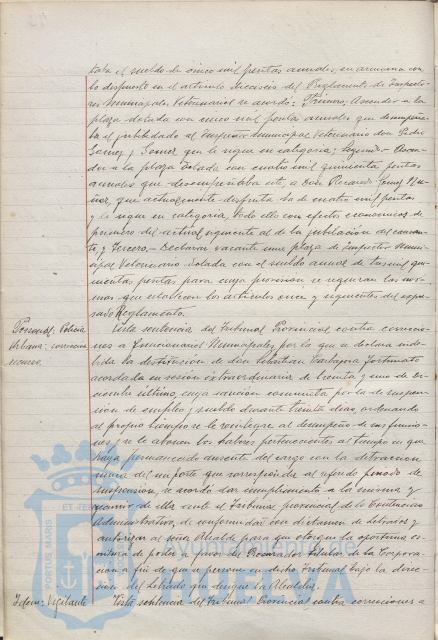 taba el sueldo de cinco mil pesetas anuales, en armonia con
lo dispuesto en el articulo del Reglamento de Inspecto-
res Municipales Veterinarios se acordó: Primero; Ascender a la
plaza dotada con cinco mil pesetas anuales que desempeña-
ba el jubilado al Inspector Municipal Veterinario don Pedro
Gomez y Gomez que le sigue en categoria; Segundo - Ascen-
der a la plaza dotada con cuatro mil quinientas pesetas
anuales que desempeñaba este, a don Ricardo Gomez
que actualmente disfruta la de cuatro mil pesetas
y le sigue en categoria, todo ello con efectos economicos de
primero del actual siguiente al de la jubilación del causan-
te y Tercero.- Declarar vacante una plaza de Inspector Muni-
cipal Veterinario dotada con el sueldo anual de tres mil qui-
nientas pesetas para cuya provision se seguiran las nor-
mas que establecen los articulos once y siguientes del expre-
sado Reglamento.
Personal. Policia
Urbana:
recurso.
Vista sentencia del Tribunal Provincial contra correccio-
nes a funcionarios Municipales, por la que se declara inde-
bida la destitución de don Sebastian Carbajosa
acordada en sesión extraordinaria de treinta y uno de Di-
ciembre último, cuya sanción conmuta por la de suspen-
sion de empleo y sueldo durante treinta dias, ordenando
al propio tiempo se le reintegre al desempeño de sus funcio-
nes y se le abonen los haberes pertenecientes al tiempo en que
haya permanecido ausente del cargo con la detraccion
unica del importe que corresponde al referido periodo de
suspension, se acordó dar cumplimiento a la misma y
recurrir de ella ante el Tribunal provincial de lo Contencioso
Administrativo, de conformidad con dictamen de Letrados y
autorizar al señor Alcalde para que otorgue la oportuna es-
critura de poder a favor del Procurador titular de la Corpora-
cion a fin de que se persone en dicho Tribunal bajo la direc-
cion del Letrado que designe la Alcaldia.
Idem: Vigilante
Vista sentencia del Tribunal Provincial contra correcciones a
PORTUS MARIS